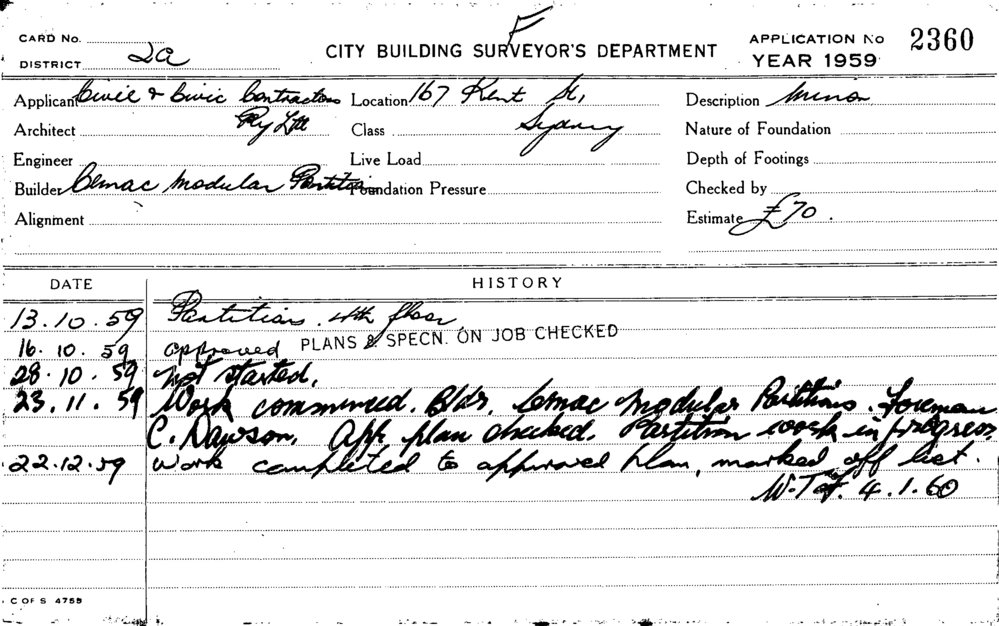 F
CARD No.
DISTRICT 2a
CITY BUILDING SURVEYOR'S DEPARTMENT
APPLICATION No 2360
YEAR 1959
Applicant Civil & Civic Contractors Location 167 Kent St, Description Minor
Architect Pty Ltd Class Sydney Nature of Foundation
Engineer Live Load Depth of Footings
Builder Cemac Modular Partitions Foundation Pressure Checked by
Alignment Estimate £70.
DATE HISTORY
13.10.59 Partitions. 4th floor
16.10.59 approved PLANS & SPECN. ON JOB CHECKED
28.10.59 not started.
23.11.59 Work commenced. Bldr. Cemac Modular Partitions. Foreman
C. Dawson. App. plan checked. Partition work in progress.
22.12.59 Work completed to approved plan, marked off list.
4.1.60
C OF S 4755